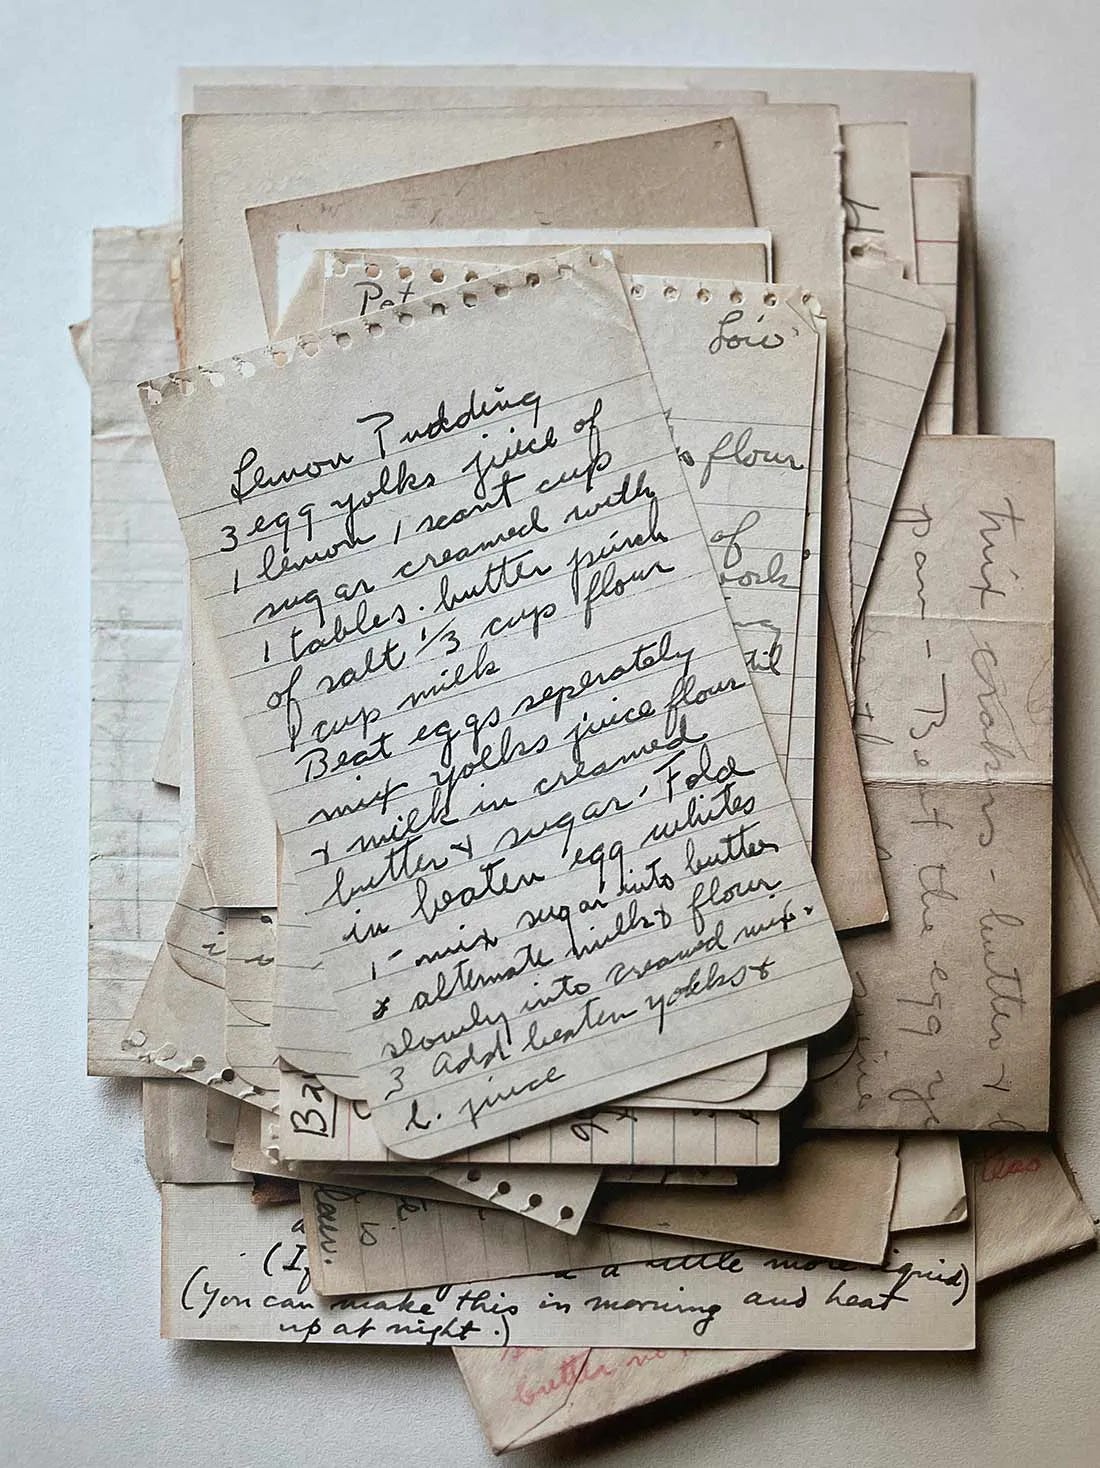 Lemon Pudding
3 egg yolks juice of
1 lemon 1 scant cup
sugar creamed with
1 tables. butter pinch
of salt 1/3 cup flour
1 cup milk
Beat eggs seperately
mix yolks juice flour
& milk in creamed
butter & sugar. Fold
in beaten egg whites
1- mix sugar into butter
& alternate milk & flour
slowly into creamed mix.
3 Add beaten yolks &
L. juice
Lois
flour
of
mix crakers - butter &
pan - Beat the egg
(If
a little more liquid)
(You can make this in morning and heat
up at night.)
butter